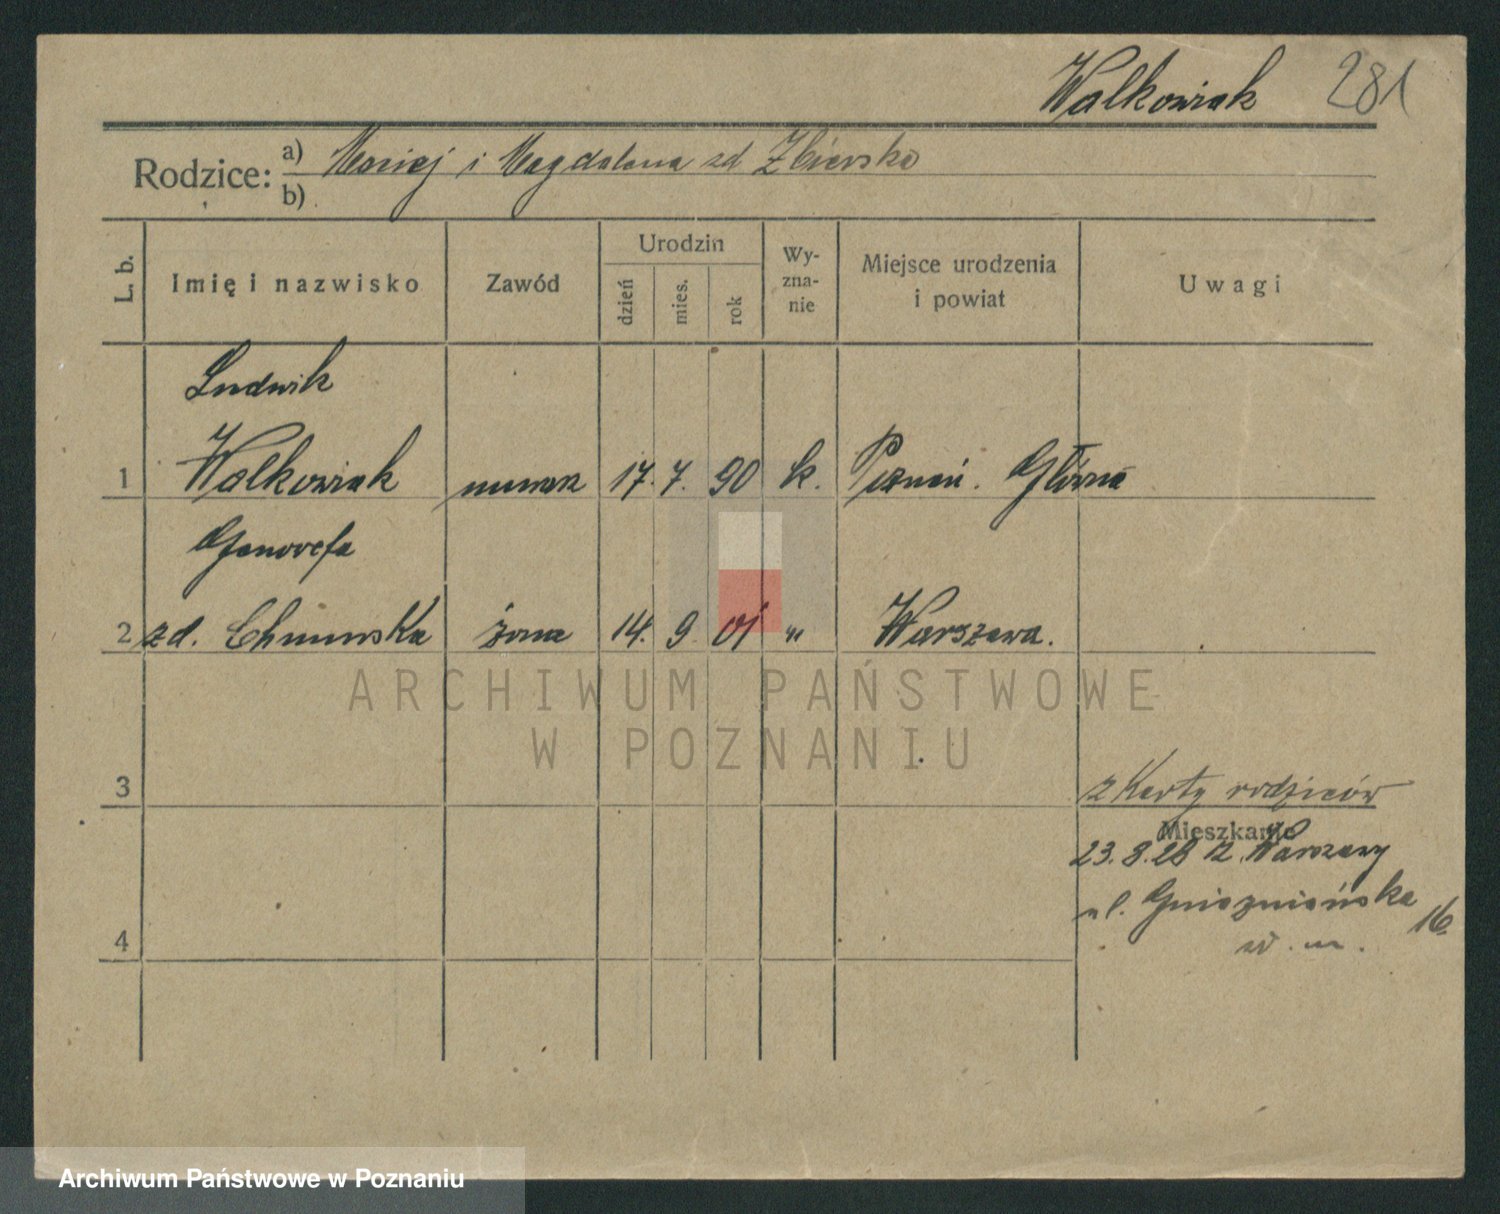 Walkowiak 281
Rodzice: a) Maciej i Magdalena zd Zbierska
b)
L. b.
Imię i nazwisko
Zawód
Urodzin
dzień
mies.
rok
Wy-
zna-
nie
Miejsce urodzenia
i powiat
Uwagi
Ludwik
1 Walkowiak murarz 17. 7. 90 k. Poznań. Główna
Genowefa
2 zd. żona 14. 9. 01 " Warszawa.
ARCHIWUM PAŃSTWOWE
W POZNANIU
3
z Karty rodziców
Mieszkanie
23.8.28 z Warszawy
ul. Gnieźnieńska 16
4
Archiwum Państwowe w Poznaniu